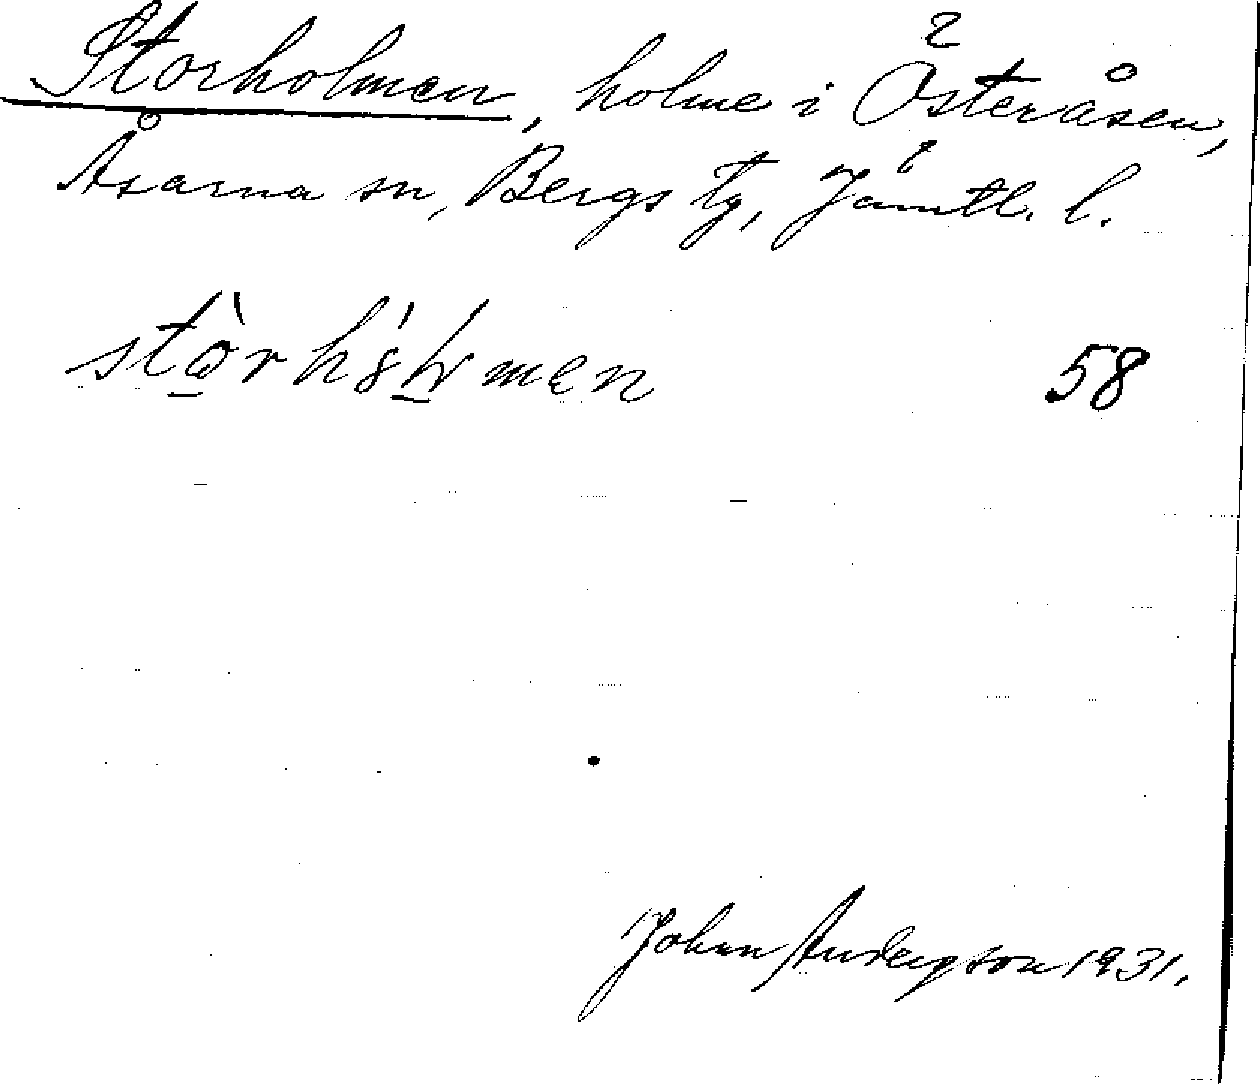 Storholmen, holme i Österåsen,
Åsarna sn, Bergs tg, Jämtl. l.
58
John Anderson 1931.